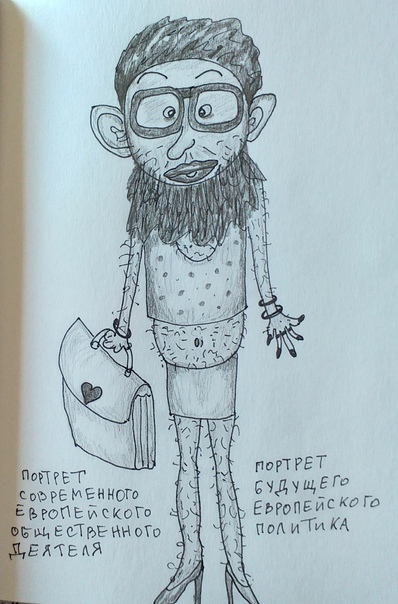 ПОРТРЕТ
СОВРЕМЕННОГО
ЕВРОПЕЙСКОГО
ОБЩЕСТВЕННОГО
ДЕЯТЕЛЯ
ПОРТРЕТ
БУДУЩЕГО
ЕВРОПЕЙСКОГО
ПОЛИТИКА